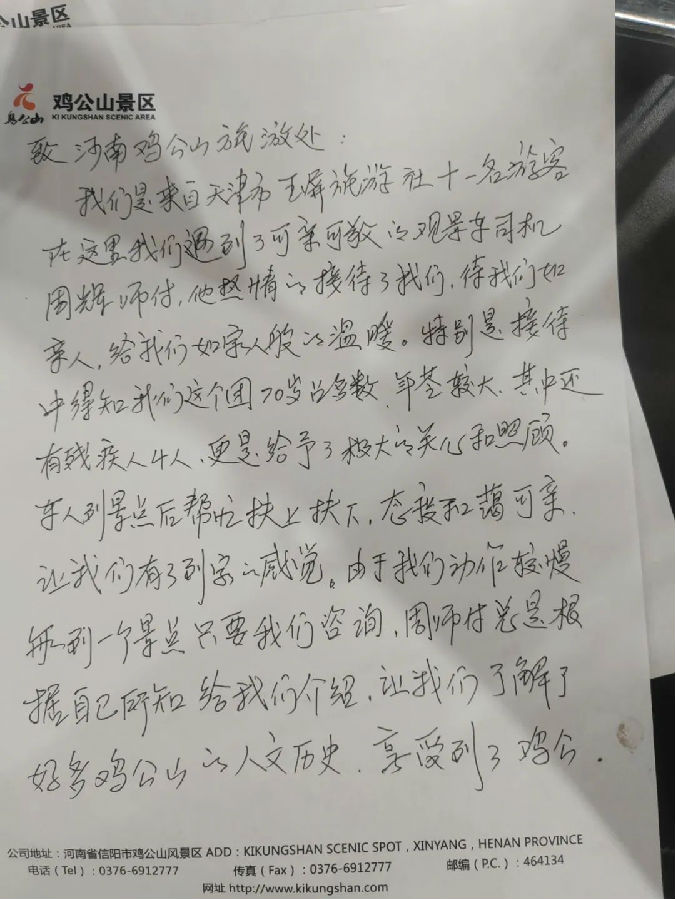 公山景区
SCENIC AREA
鸡公山 鸡公山景区
KIKUNGSHAN SCENIC AREA
致河南鸡公山旅游处：
我们是来自天津市玉屏旅游社十一名游客
在这里我们遇到了可亲可敬的观景车司机
周辉师付，他热情的接待了我们，待我们如
亲人，给我们如家人般的温暖。特别是接待
中得知我们这个团70岁占多数、年茎较大、其中还
有残疾人4人、更是给予了极大的关心和照顾。
车人到景点后帮忙扶上扶下，态度和蔼可亲、
让我们有了到家的感觉。由于我们动作较慢
每到一个景点只要我们咨询，周师付总是根
据自己所知给我们介绍，让我们了解了
好多鸡公山的人文历史、享受到了鸡公
公司地址：河南省信阳市鸡公山风景区 ADD：KIKUNGSHAN SCENIC SPOT，XINYANG，HENAN PROVINCE
电话（Tel）：0376-6912777 传真（Fax）：0376-6912777 邮编（P.C.）：464134
网址 http://www.kikungshan.com